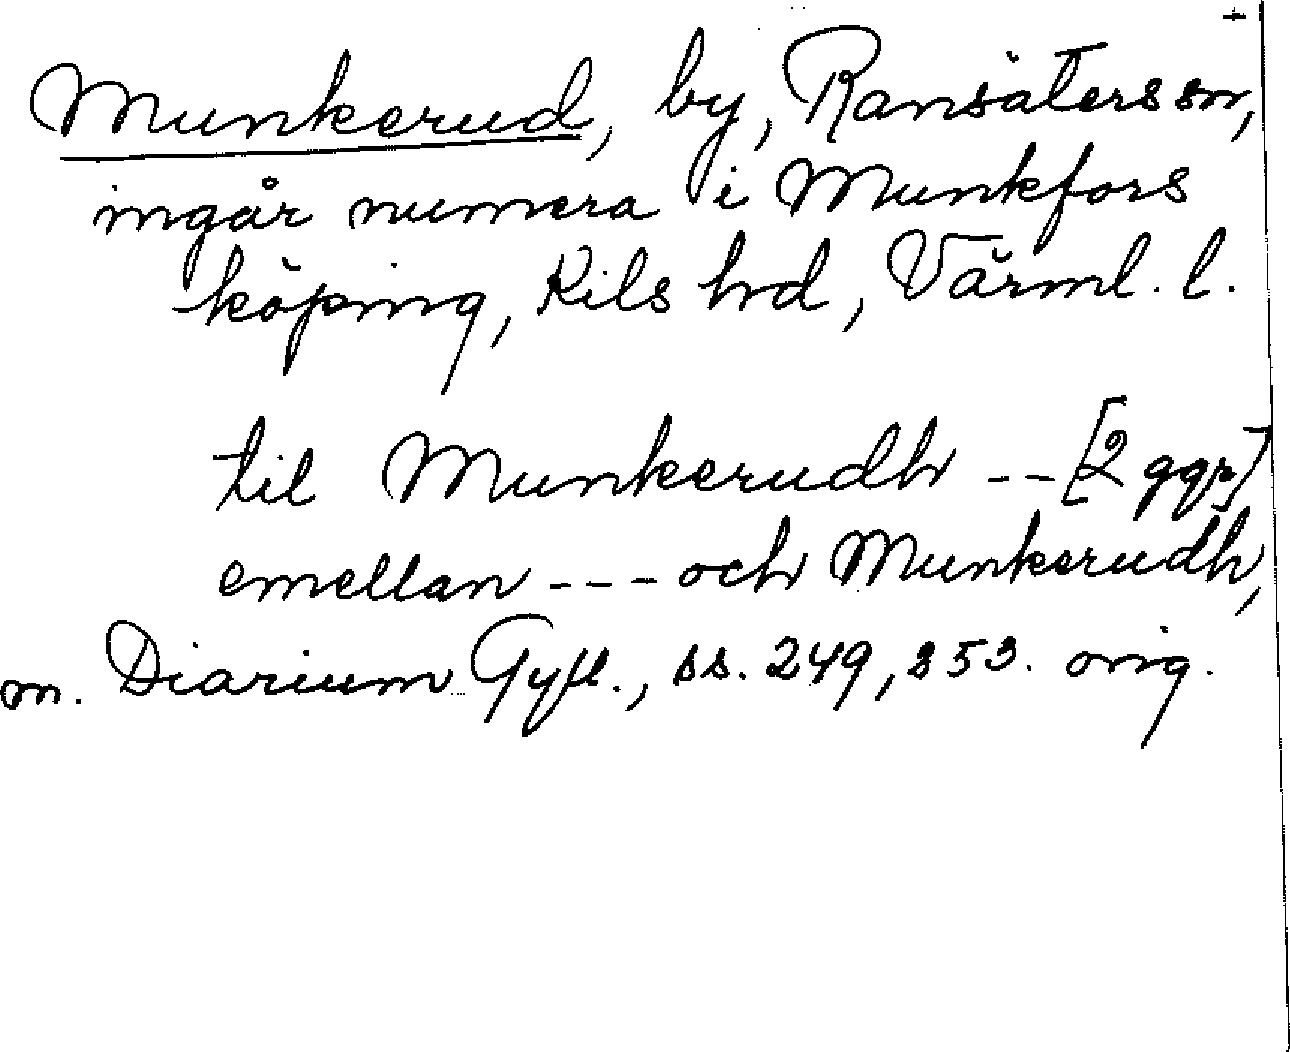 +
Munkerud, by, Ransäters sn,
ingår numera i Munkfors
köping, Kils hrd, Värml. l.
til Munkerudh -- [2 ggr]
emellan --- och Munkerudh,
m. Diarium Gyll., ss. 249, 353. orig.